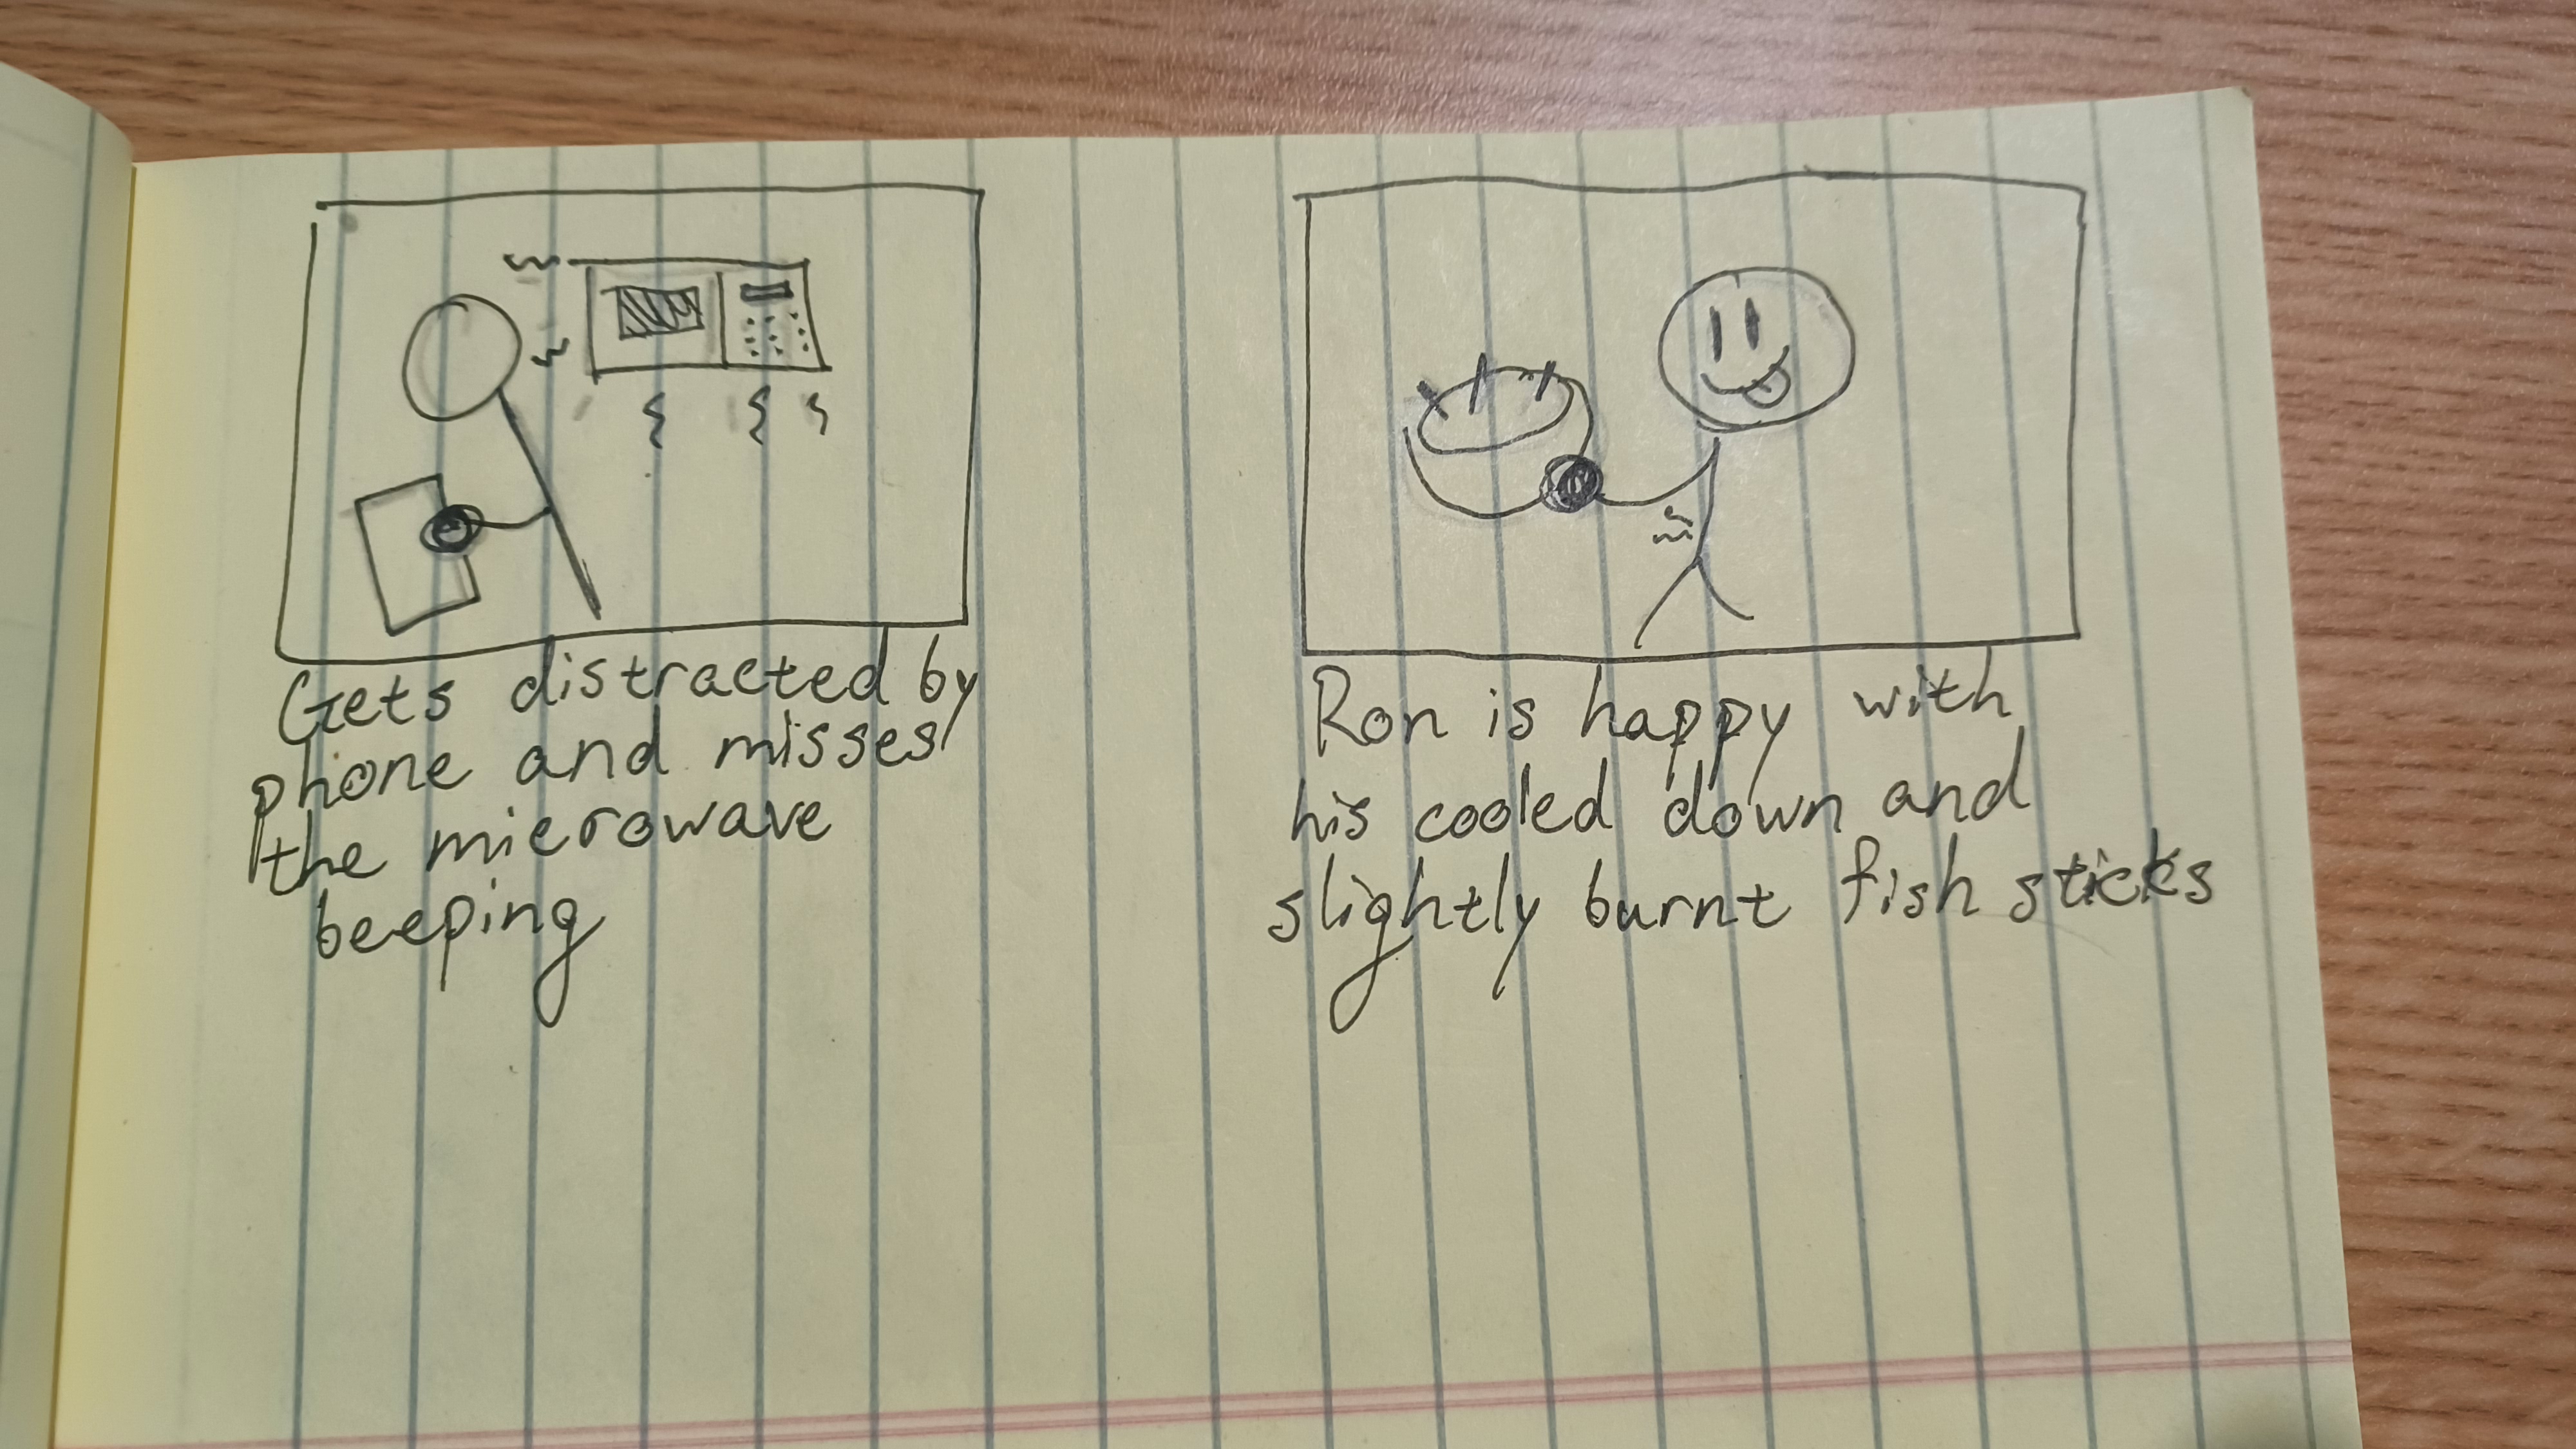 Gets distracted by
phone and misses
the microwave
beeping
Ron is happy with
his cooled down and
slightly burnt fish sticks